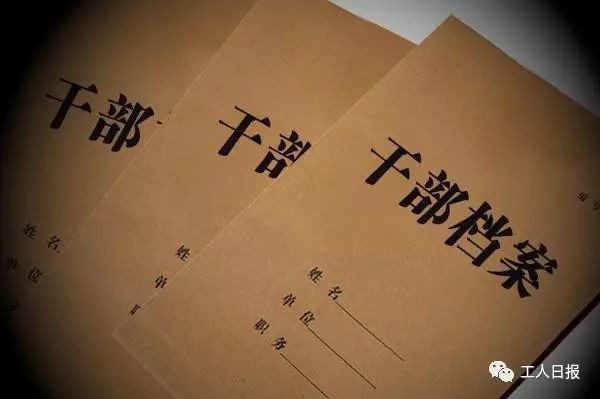 干部
姓名
单位
干部
姓名
单位
干部档案
编号
姓名
单位
职务
工人日报